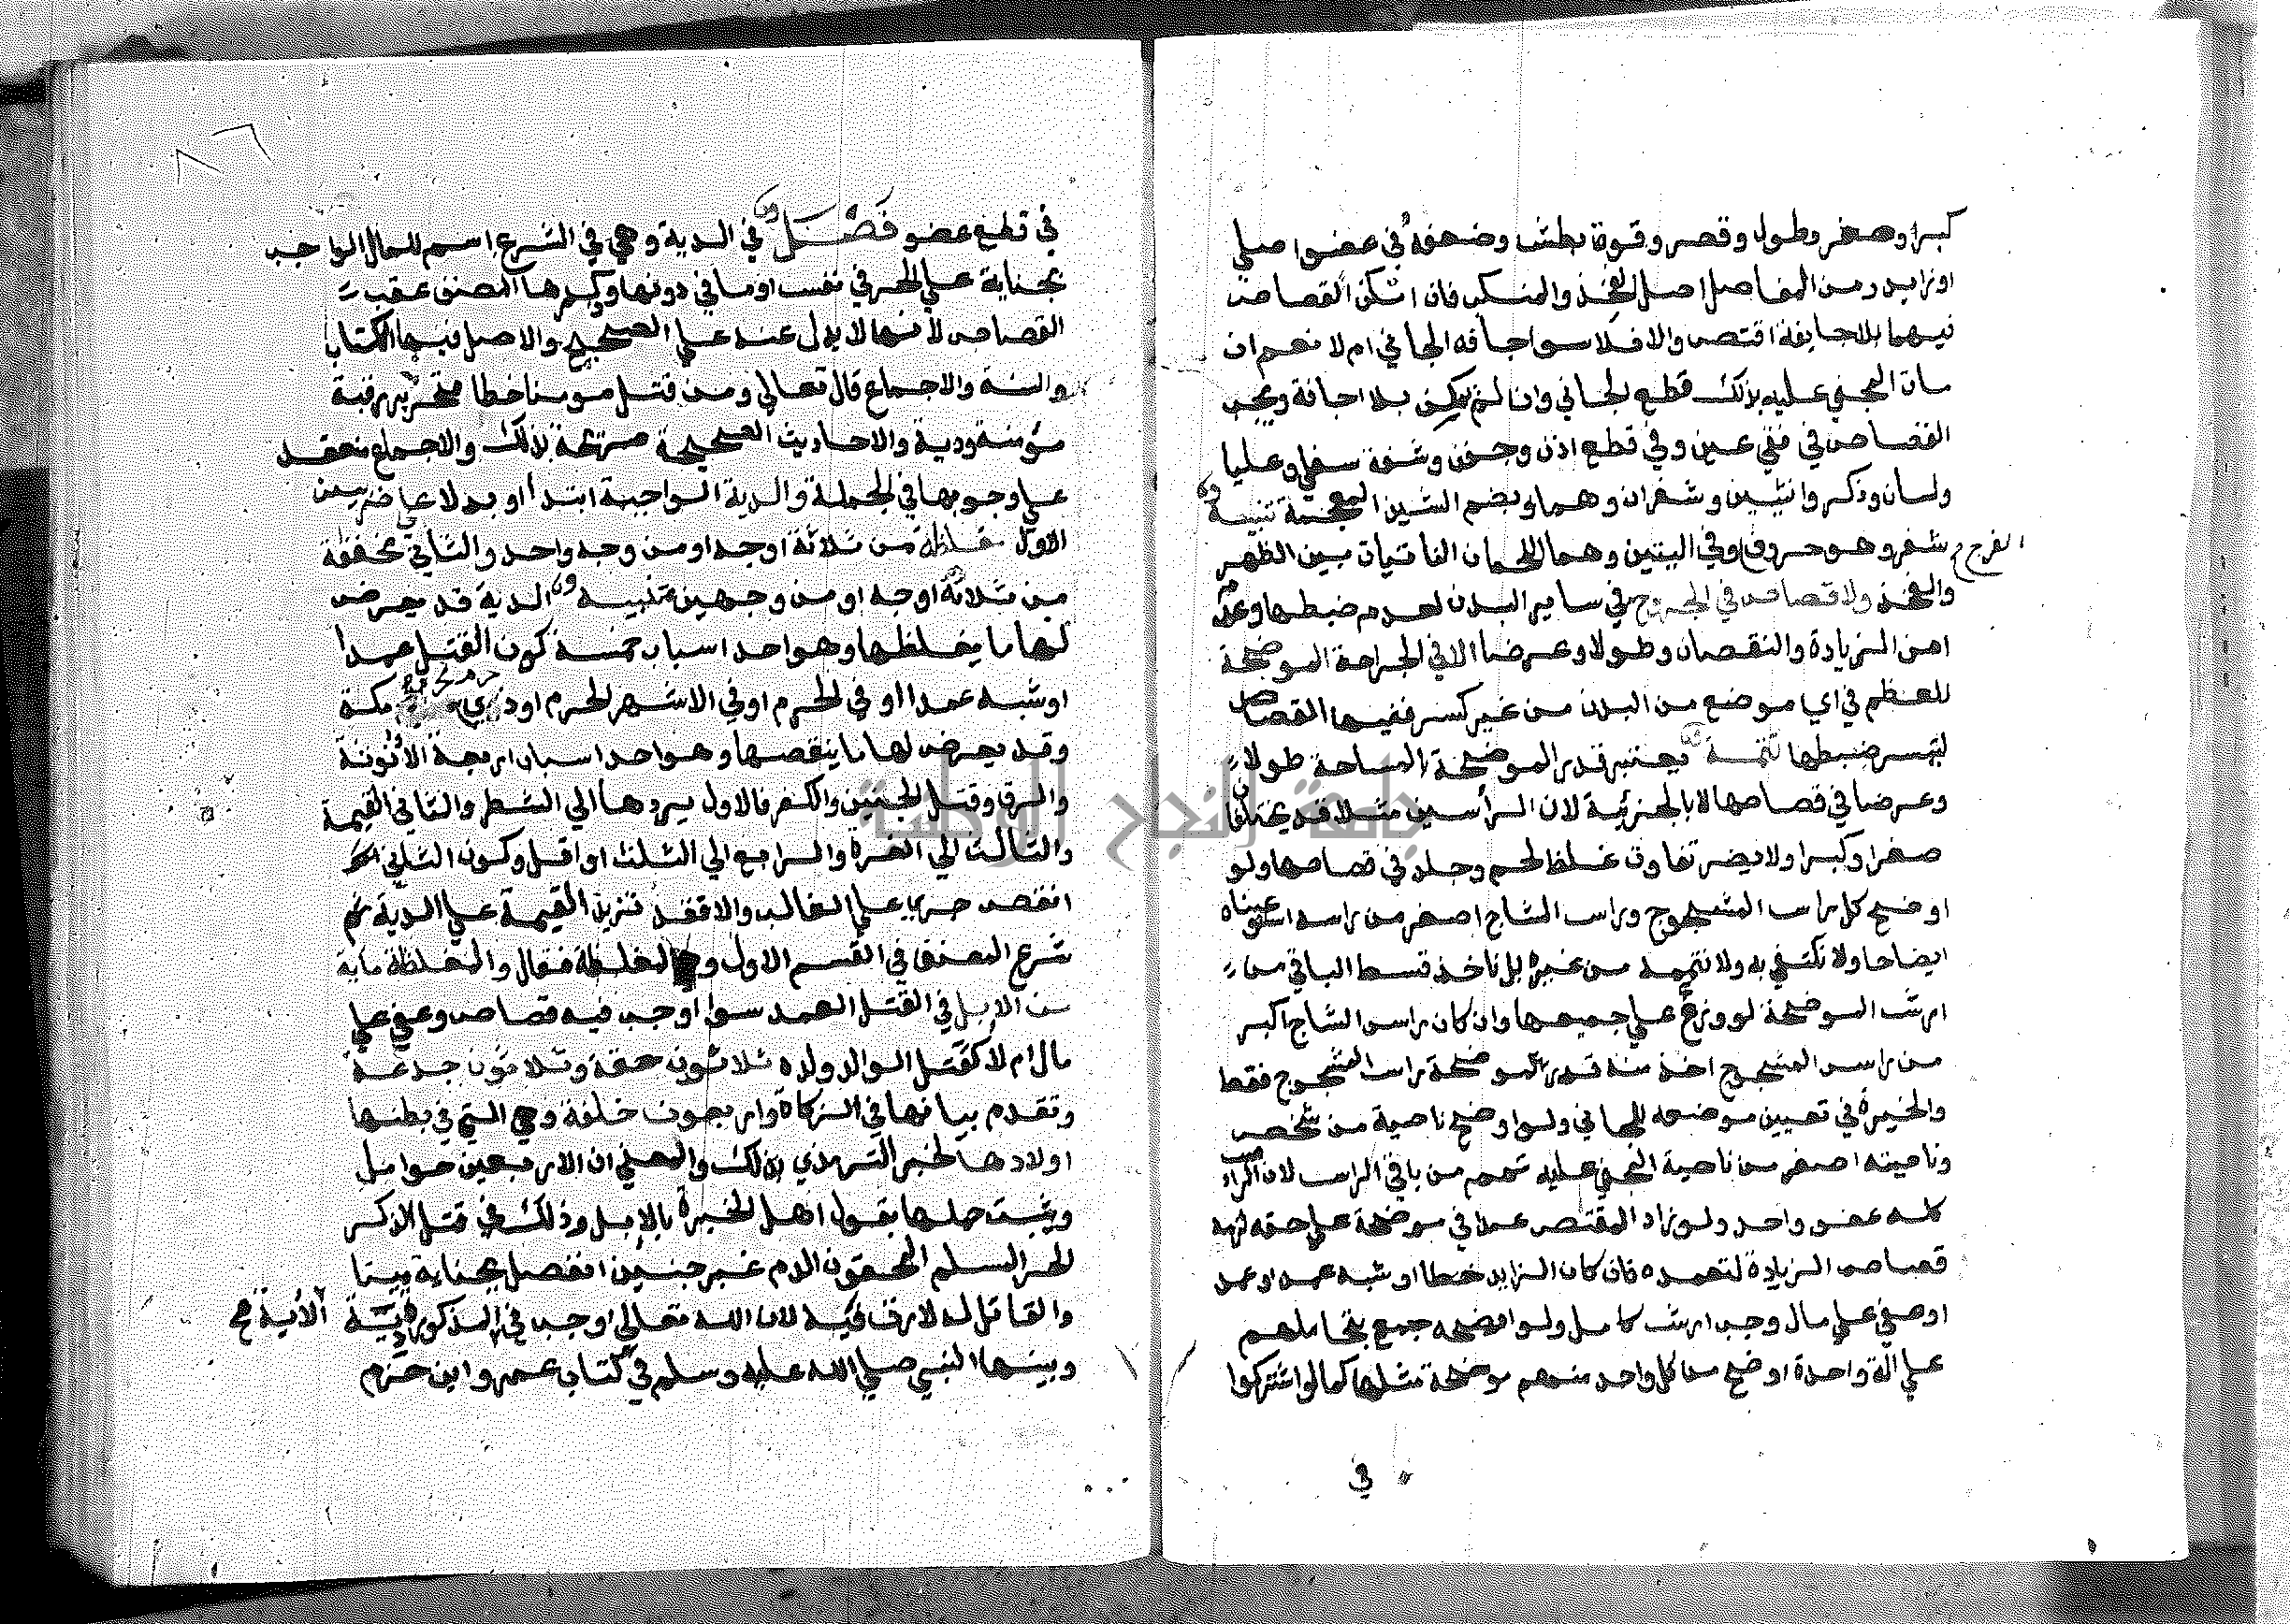 كبرا وصغر وطول وقصر وقوة بطش وضعفه في عضو اصلي
او زايد ومن المفاصل اصل الفخذ والمنكب فان امكن القصاص
فيهما بلا جايفة اقتص والا فلا سوا اجافه الجاني ام لا نعم ان
مات المجني عليه بذلك قطع الجاني وان لم يمكن بلا اجافة ويجب
القصاص في فقي عين وفي قطع اذن وجفن وشفة سفلي وعليا
ولسان وذكر وانثيين وشفران وهما بضم الشين المعجمة تثنية
شفر وهو حروف الفرج وفي اليتين وهما اللحمان الناتيان بين الظهر
والفخذ ولا قصاص في الجروح في ساير البدن لعدم ضبطها وعدم
امن الزيادة والنقصان وطولا وعرضا الا في الجراحة الموضحة
للعظم في اي موضع من البدن من غير كسر ففيها القصاص
لتيسر ضبطها تتمة يعتبر قدر الموضحة بالمساحة طولا
وعرضا في قصاصها لا بالجزئية لان الرأسين مثلا قد يختلفان
صغرا وكبرا ولا يضر تفاوت غلظ لحم وجلد في قصاصها ولو
اوضح كل راس المشجوج وراس الشاج اصغر من راسه استوعبناه
ايضاحا ولا نكتفي به ولا نتممه من غيره بل ناخذ قسط الباقي من
ارش الموضحة لو وزع علي جميعها وان كان راس الشاج اكبر
من راس المشجوج اخذ منه قدر الموضحة راس المشجوج فقط
والخيرة في تعيين موضعه للجاني ولو اوضح ناصية من شخص
وناصيته اصغر من ناصية المجني عليه تمم من باقي الراس لان الراس
كله عضو واحد ولو زاد المقتص عمدا في موضحة علي حقه لزمه
قصاص الزيادة لتعمده فان كان الزايد خطا او شبه عمد او عمد
او عفي علي مال وجب ارش كامل ولو اوضحه جمع بتحاملهم
علي آلة واحدة اوضح من كل واحد منهم موضحة مثلها كما لو اشتركوا
في
في قطع عضو فصل في الدية وهي في الشرع اسم للمال الواجب
بجناية علي الحر في نفس او ما في دونها وذكرها المصنف عقب
القصاص لانها لا بدل عنه علي الصحيح والاصل فيها الكتاب
والسنة والاجماع قال تعالي ومن قتل مومنا خطا فتحرير رقبة
مؤمنة ودية والاحاديث الصحيحة بذلك والاجماع منعقد
علي وجوبها في الجملة والدية الواجبة ابتدأ او بدلا علي ضربين
الاول مغلظة من ثلاثة اوجه او من وجه واحد والثاني مخففة
من ثلاثة اوجه او من وجهين تنبيه الدية قد يعرض
لها ما يغلظها وهو احد اسباب خمسة كون القتل عمدا
او شبه عمدا او في الحرم او في الاشهر الحرم او ذي رحم محرم مكة
وقد يعرض لها ما ينقصها وهو احد اسباب اربعة الأنوثة
والرق وقتل الجنين والكفر فالاول يردها الي الشطر والثاني القيمة
والثالث الي الغرة والرابع الي الثلث او اقل وكون الثاني
انقص جري علي الغالب والا فقد تزيد القيمة علي الدية ثم
شرع المصنف في القسم الاول وهو المغلظة فقال والمغلظة ماية
من الابل في القتل العمد سوا اوجب فيه قصاص وعفي علي
مال ام لا كقتل الوالد ولده ثلاثون حقة وثلاثون جذعة
وتقدم بيانها في الزكاة واربعون خلفة وهي التي في بطنها
اولادها لخبر الترمذي بذلك والمعني ان الاربعين حوامل
ويثبت حملها بقول اهل الخبرة بالإبل وذلك في قتل الذكر
الحر المسلم المحقون الدم غير جنين انفصل بجناية ميتا
والقاتل له لا رق فيه لان الله تعالي اوجب في المذكورة دية الأية صح
وبينها النبي صلي الله عليه وسلم في كتاب عمرو ابن حزم
جامعة النجاح الوطنية